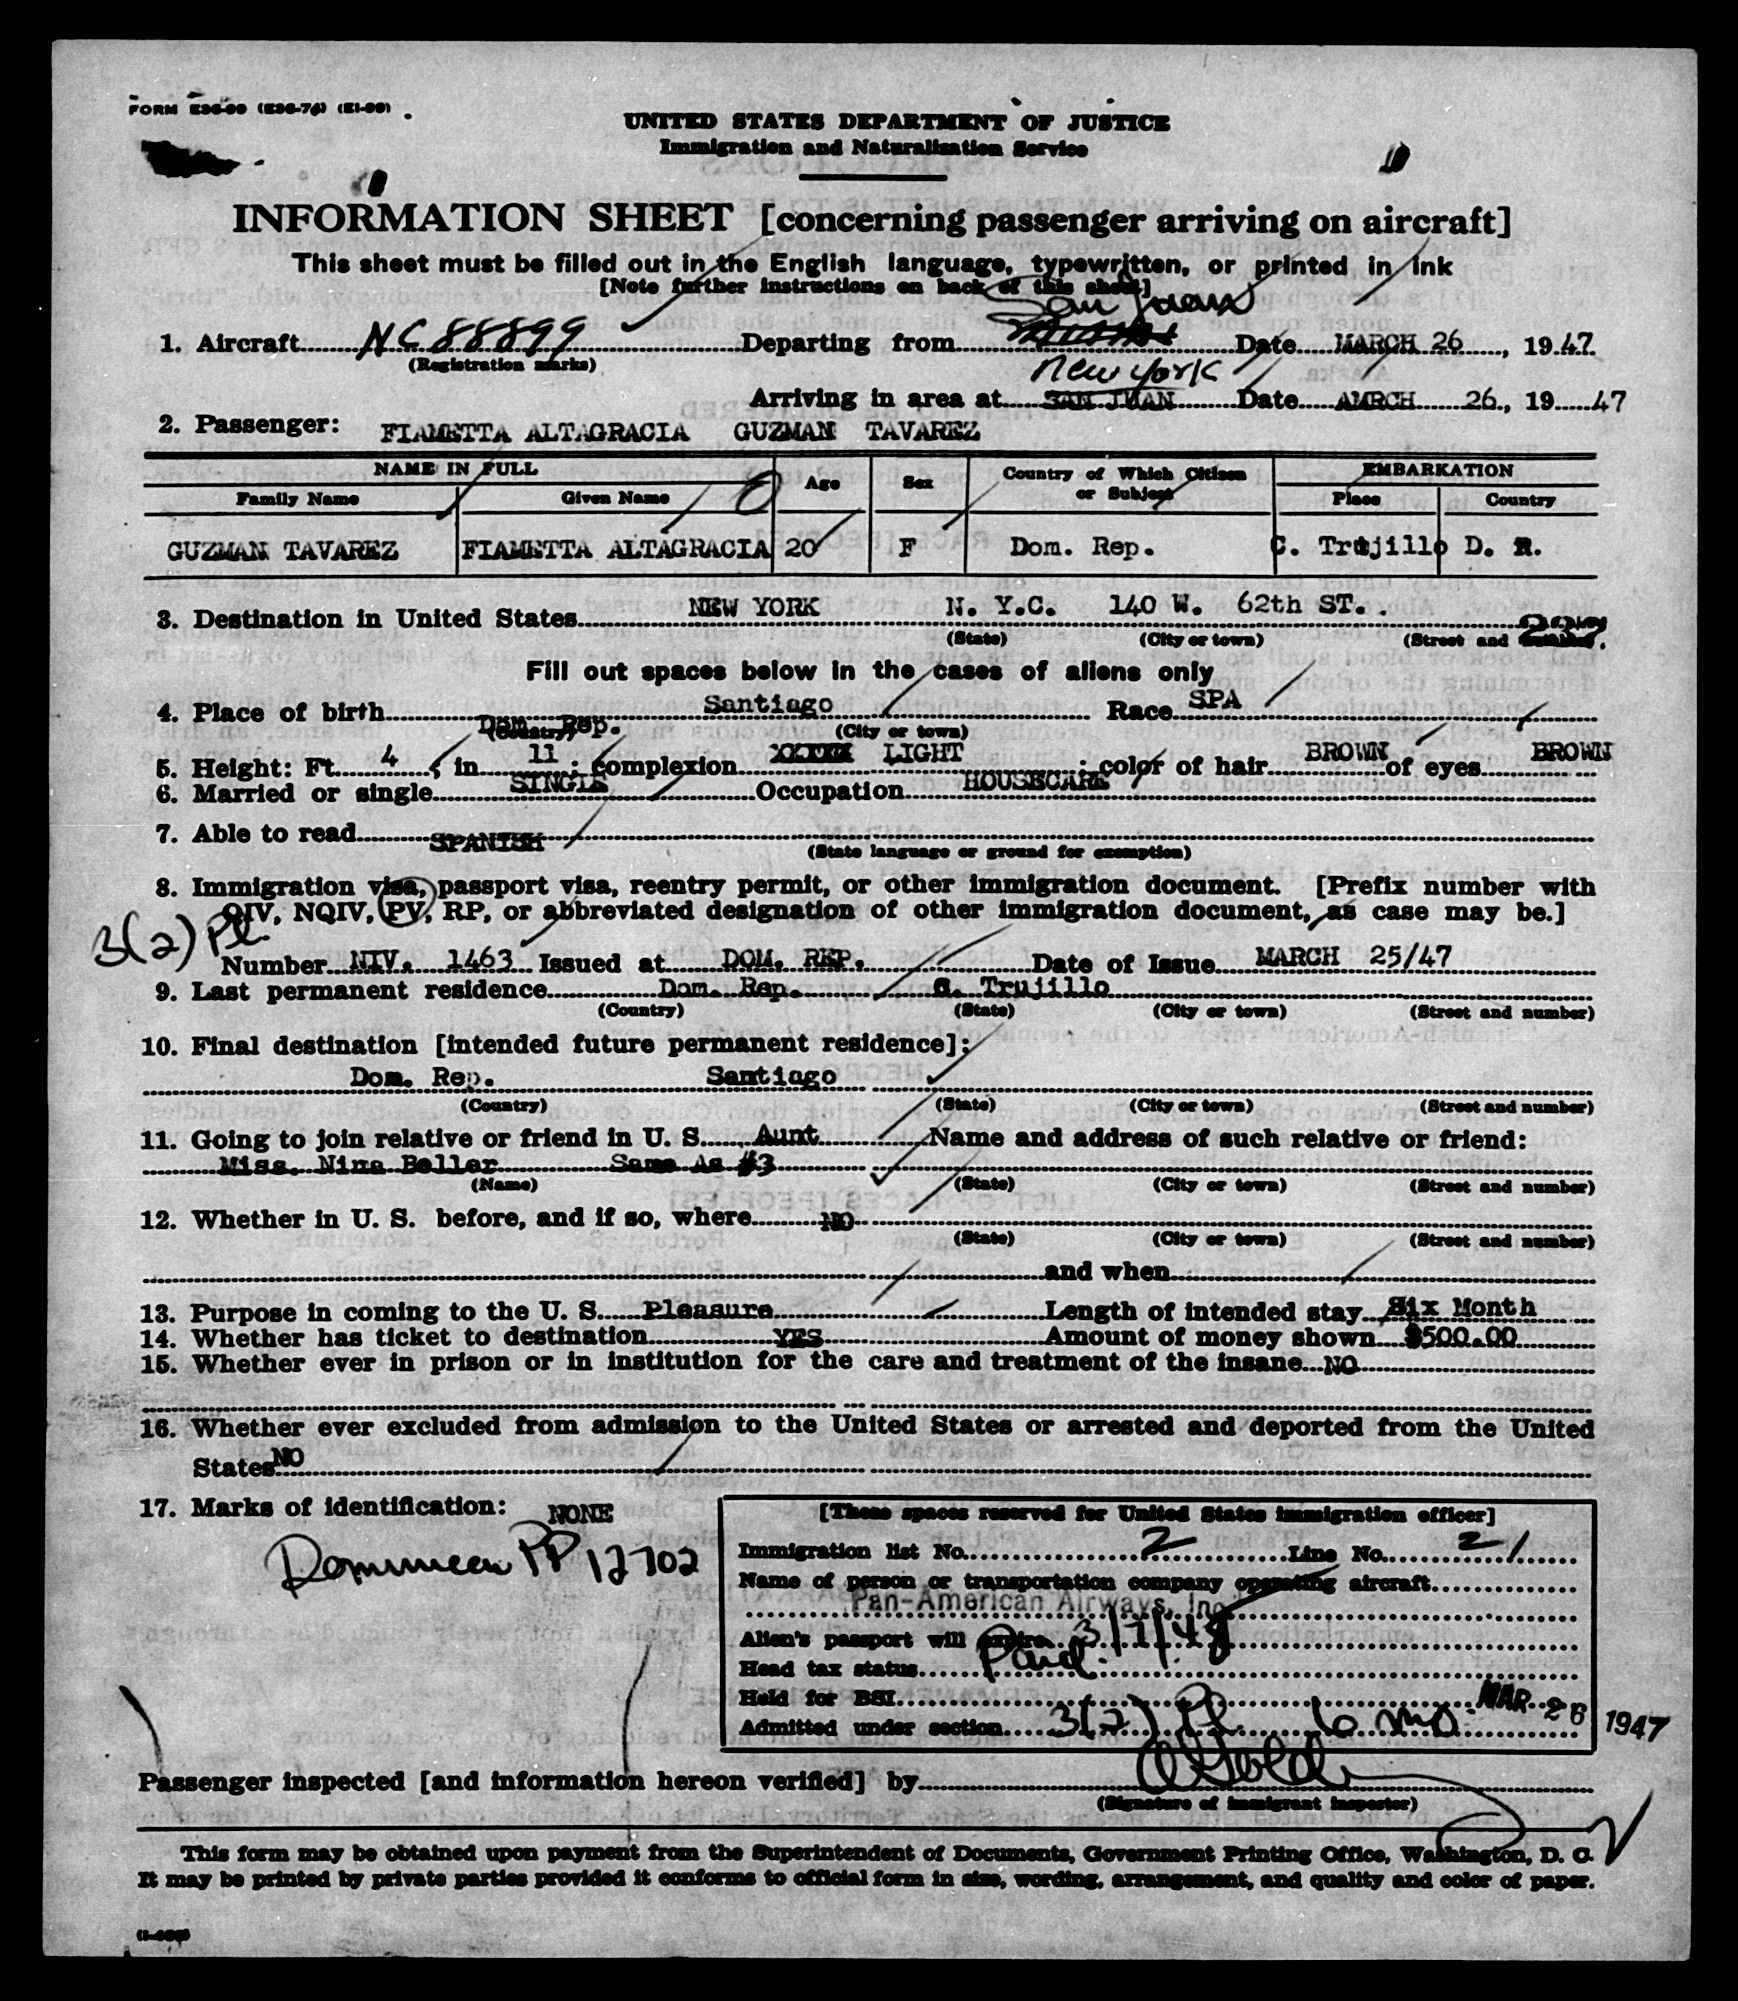 FORM E36-99 (E36-74) (E1-99)
UNITED STATES DEPARTMENT OF JUSTICE
Immigration and Naturalization Service
INFORMATION SHEET [concerning passenger arriving on aircraft]
This sheet must be filled out in the English language, typewritten, or printed in ink
[Note further instructions on back of this sheet]
San Juan
1. Aircraft NC 88899 Departing from Date MARCH 26, 1947
(Registration marks)
New York
Arriving in area at SAN JUAN Date AMRCH 26, 19 47
2. Passenger: FIAMETTA ALTAGRACIA GUZMAN TAVAREZ
NAME IN FULL Age Sex Country of Which Citizen or Subject EMBARKATION
Family Name Given Name Place Country
GUZMAN TAVAREZ FIAMETTA ALTAGRACIA 20 F Dom. Rep. C. Trujillo D. R.
3. Destination in United States NEW YORK N. Y.C. 140 W. 62th ST. .
(State) (City or town) (Street and
Fill out spaces below in the cases of aliens only
4. Place of birth Santiago Race SPA
Dom. Rep. (Country) (City or town)
5. Height: Ft. 4, in. 11; complexion LIGHT; color of hair BROWN of eyes BROWN
6. Married or single SINGLE Occupation HOUSECARE
7. Able to read SPANISH
(State language or ground for exemption)
8. Immigration visa, passport visa, reentry permit, or other immigration document. [Prefix number with
QIV, NQIV, PV, RP, or abbreviated designation of other immigration document, as case may be.]
3(2) Pl
Number NIV. 1463 Issued at DOM. REP. Date of Issue MARCH 25/47
9. Last permanent residence Dom. Rep. C. Trujillo
(Country) (State) (City or town) (Street and number)
10. Final destination [intended future permanent residece]:
Dom. Rep. Santiago
(Country) (State) (City or town) (Street and number)
11. Going to join relative or friend in U. S. Aunt Name and address of such relative or friend:
Miss. Nina Beller Same As #3
(Name) (State) (City or town) (Street and number)
12. Whether in U. S. before, and if so, where NO
(State) (City or town) (Street and number)
and when
13. Purpose in coming to the U. S. Pleasure Length of intended stay Six Month
14. Whether has ticket to destination YES Amount of money shown $500.00
15. Whether ever in prison or in institution for the care and treatment of the insane NO
16. Whether ever excluded from admission to the United States or arrested and deported from the United
States NO
17. Marks of identification: NONE
Dominican PP 12702
[These spaces reserved for United States immigration officer]
Immigration list No. 2 Line No. 21
Name of person or transportation company operating aircraft
Pan-American Airways, Inc.
Alien's passport will expire 3/7/48
Head tax status Paid
Held for BSI
Admitted under section 3(2) Pl 6 mo. MAR 26 1947
Passenger inspected [and information hereon verified] by
(Signature of immigrant inspector)
This form may be obtained upon payment from the Superintendent of Documents, Government Printing Office, Washington, D. C.
It may be printed by private parties provided it conforms to official form in size, wording, arrangement, and quality and color of paper.